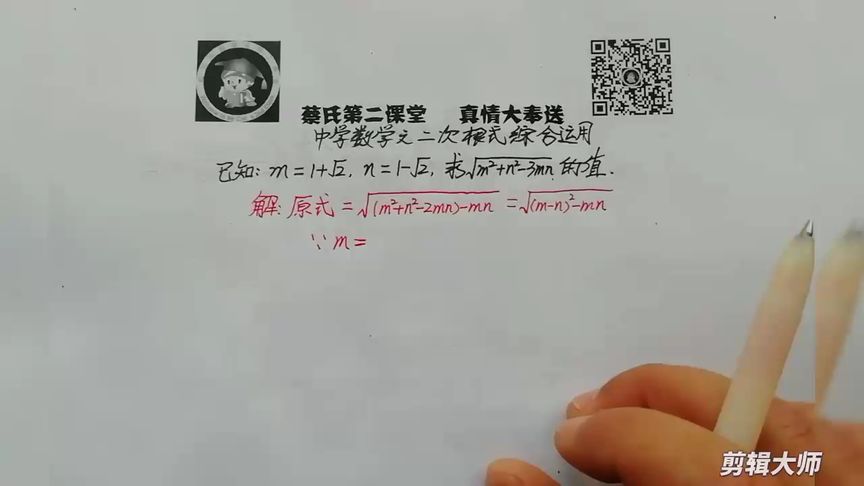 蔡氏第二课堂 真情大奉送
中学数学之二次根式综合运用
已知: m=1+√2, n=1-√2, 求√(m²+n²-3mn) 的值.
解: 原式=√((m²+n²-2mn)-mn) =√((m-n)²-mn)
∵ m=
剪辑大师